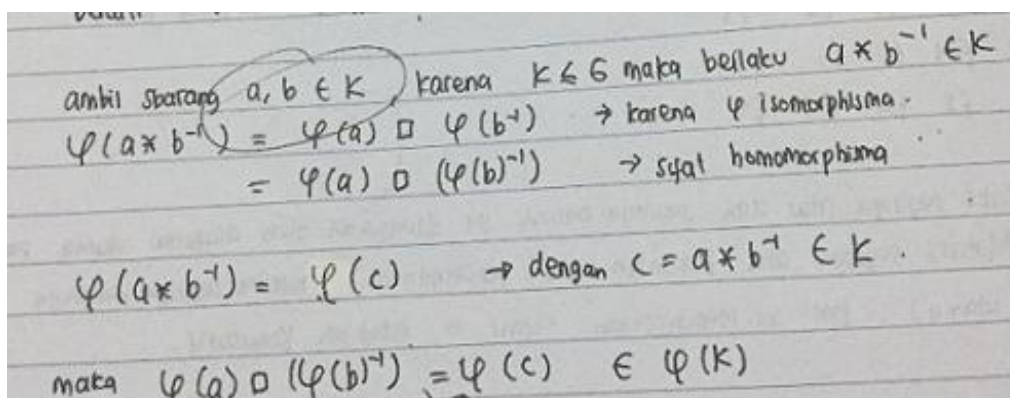 ambil sbarang a, b ∈ K, karena K ≤ G maka berlaku a * b⁻¹ ∈ K
φ(a * b⁻¹) = φ(a) □ φ(b⁻¹) → karena φ isomorphisma.
= φ(a) □ (φ(b)⁻¹) → sifat homomorphisma
φ(a * b⁻¹) = φ(c) → dengan c = a * b⁻¹ ∈ K.
maka φ(a) □ (φ(b)⁻¹) = φ(c) ∈ φ(K)